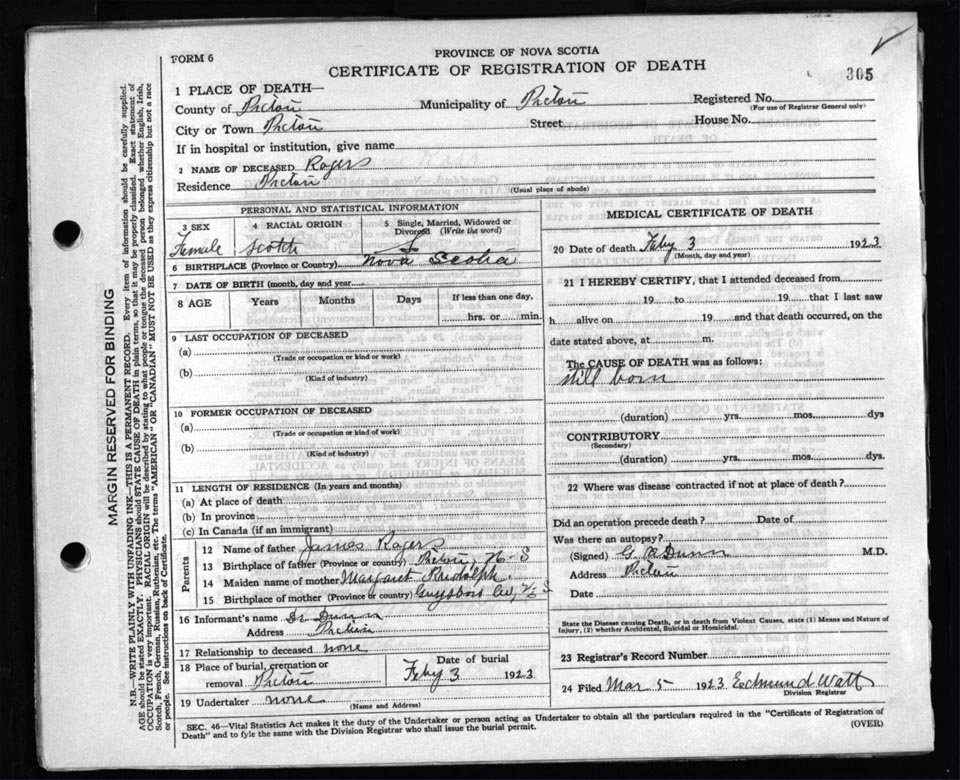 FORM 6
PROVINCE OF NOVA SCOTIA
CERTIFICATE OF REGISTRATION OF DEATH
305
1 PLACE OF DEATH—
County of Pictou Municipality of Pictou Registered No.
(For use of Registrar General only)
City or Town Pictou Street House No.
If in hospital or institution, give name
2 NAME OF DECEASED Rogers
Residence Pictou
(Usual place of abode)
PERSONAL AND STATISTICAL INFORMATION
3 SEX 4 RACIAL ORIGIN 5 Single, Married, Widowed or Divorced (Write the word)
Female Scotch S
6 BIRTHPLACE (Province or Country) Nova Scotia
7 DATE OF BIRTH (month, day and year)
8 AGE Years Months Days If less than one day,
hrs. or min.
9 LAST OCCUPATION OF DECEASED
(a)
(Trade or occupation or kind or work)
(b)
(Kind of industry)
10 FORMER OCCUPATION OF DECEASED
(a)
(Trade or occupation or kind of work)
(b)
(Kind of industry)
11 LENGTH OF RESIDENCE (In years and months)
(a) At place of death
(b) In province
(c) In Canada (if an immigrant)
Parents
12 Name of father James Rogers
13 Birthplace of father (Province or Country) Pictou, N-S
14 Maiden name of mother Margaret Rudolph
15 Birthplace of mother (Province or Country) Guysboro Co, N S
16 Informant's name Dr Dunn
Address Pictou
17 Relationship to deceased none
18 Place of burial, cremation or removal Pictou
Date of burial
Feby 3 1923
19 Undertaker none
(Name and Address)
MEDICAL CERTIFICATE OF DEATH
20 Date of death Feby 3 1923
(Month, day and year)
21 I HEREBY CERTIFY, that I attended deceased from
19 to 19 that I last saw
h alive on 19 and that death occurred, on the
date stated above, at m.
The CAUSE OF DEATH was as follows:
Still born
(duration) yrs. mos. dys
CONTRIBUTORY
(Secondary)
(duration) yrs. mos. dys.
22 Where was disease contracted if not at place of death?
Did an operation precede death? Date of
Was there an autopsy?
(Signed) G A Dunn M.D.
Address Pictou
Date
State the Disease causing Death, or in death from Violent Causes, state (1) Means and Nature of
Injury, (2) whether Accidental, Suicidal or Homicidal.
23 Registrar's Record Number
24 Filed Mar 5 1923 Edmund Watt
Division Registrar
SEC. 46—Vital Statistics Act makes it the duty of the Undertaker or person acting as Undertaker to obtain all the particulars required in the "Certificate of Registration of
Death" and to fyle the same with the Division Registrar who shall issue the burial permit. (OVER)
MARGIN RESERVED FOR BINDING
N.B.—WRITE PLAINLY WITH UNFADING INK—THIS IS A PERMANENT RECORD. Every item of information should be carefully supplied.
AGE should be stated EXACTLY. PHYSICIANS should STATE CAUSE OF DEATH in plain terms, so that it may be properly classified. Exact statement of
OCCUPATION is very important. RACIAL ORIGIN will be described by stating to what people or tongue the deceased person belonged whether English, Irish,
Scotch, French, German, Russian, Ruthenian, etc. The terms "AMERICAN" OR "CANADIAN" MUST NOT BE USED as they express citizenship but not a race
or people. See instructions on back of Certificate.